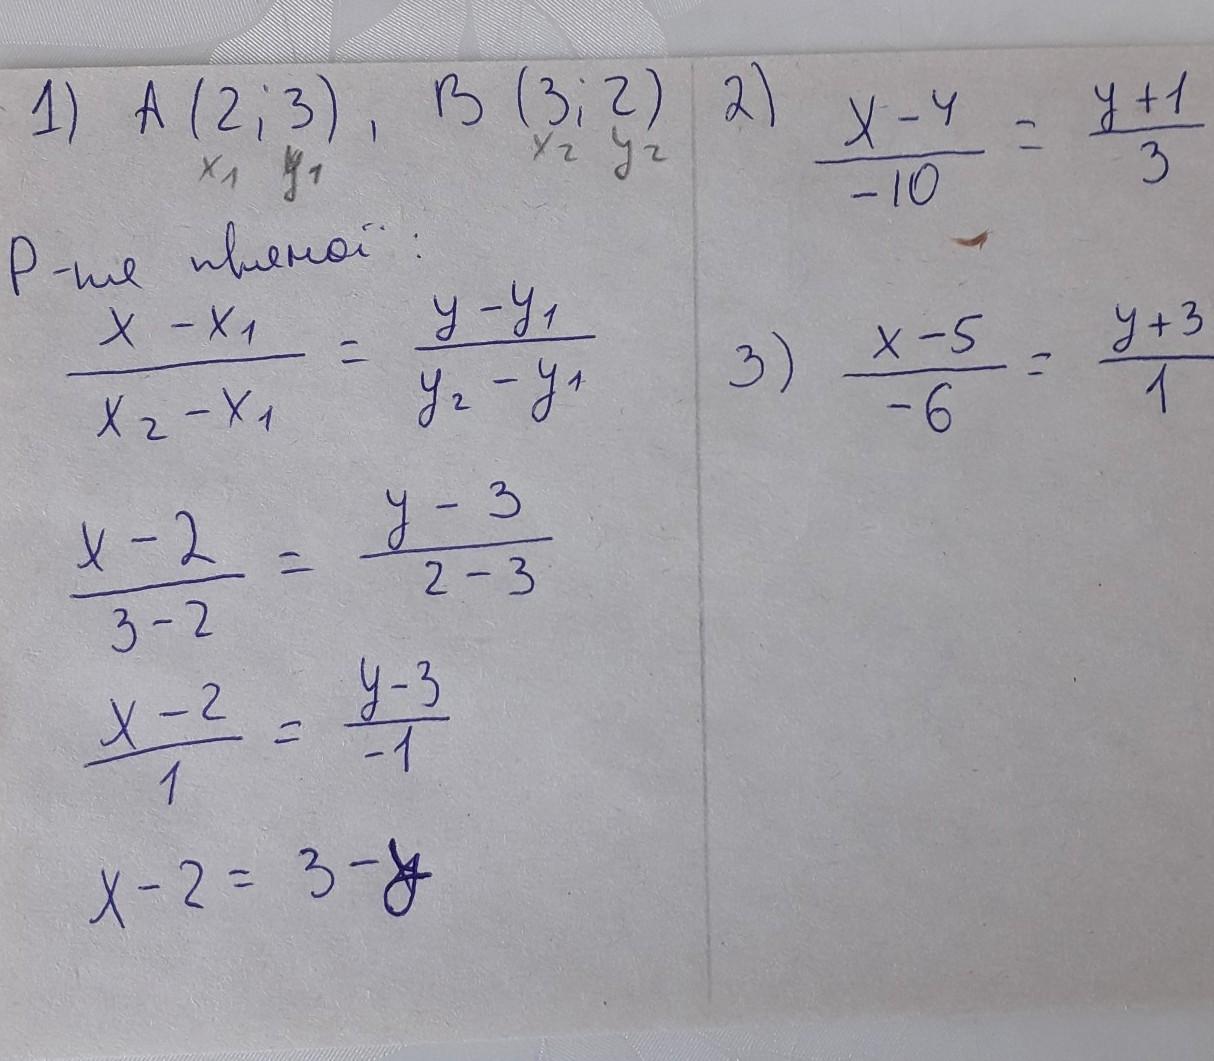 1) A (2; 3), B (3; 2)
x₁ y₁ x₂ y₂
Р-ня прямої:
(x - x₁)/(x₂ - x₁) = (y - y₁)/(y₂ - y₁)
(x - 2)/(3 - 2) = (y - 3)/(2 - 3)
(x - 2)/1 = (y - 3)/-1
x - 2 = 3 - y
2) (x - 4)/-10 = (y + 1)/3
3) (x - 5)/-6 = (y + 3)/1